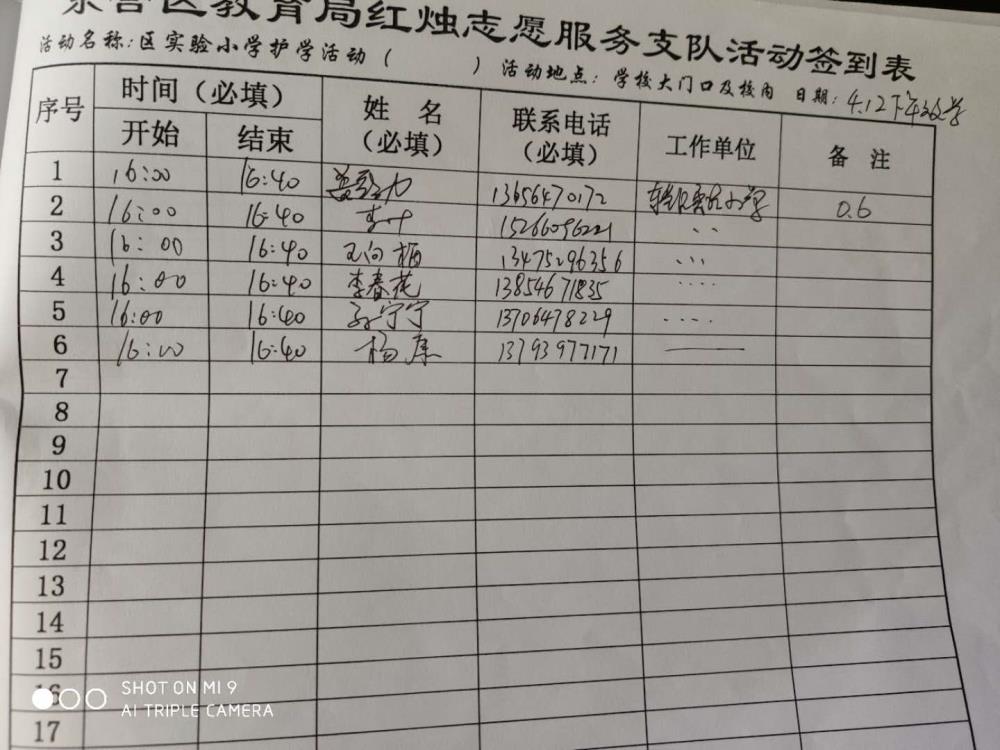 东营区教育局红烛志愿服务支队活动签到表
活动名称:区实验小学护学活动( ) 活动地点:学校大门口及校内 日期:4.12下午放学
序号 时间(必填) 姓名(必填) 联系电话(必填) 工作单位 备注
开始 结束
1 16:00 16:40 13656470172 0.6
2 16:00 16:40 15266096221 ··
3 16:00 16:40 王向栀 13475296356 ···
4 16:00 16:40 李春花 13854671835 ····
5 16:00 16:40 孙宁宁 13706478229 ····
6 16:00 16:40 杨康 13793977171 ——
7
8
9
10
11
12
13
14
15
16
17
SHOT ON MI 9
AI TRIPLE CAMERA